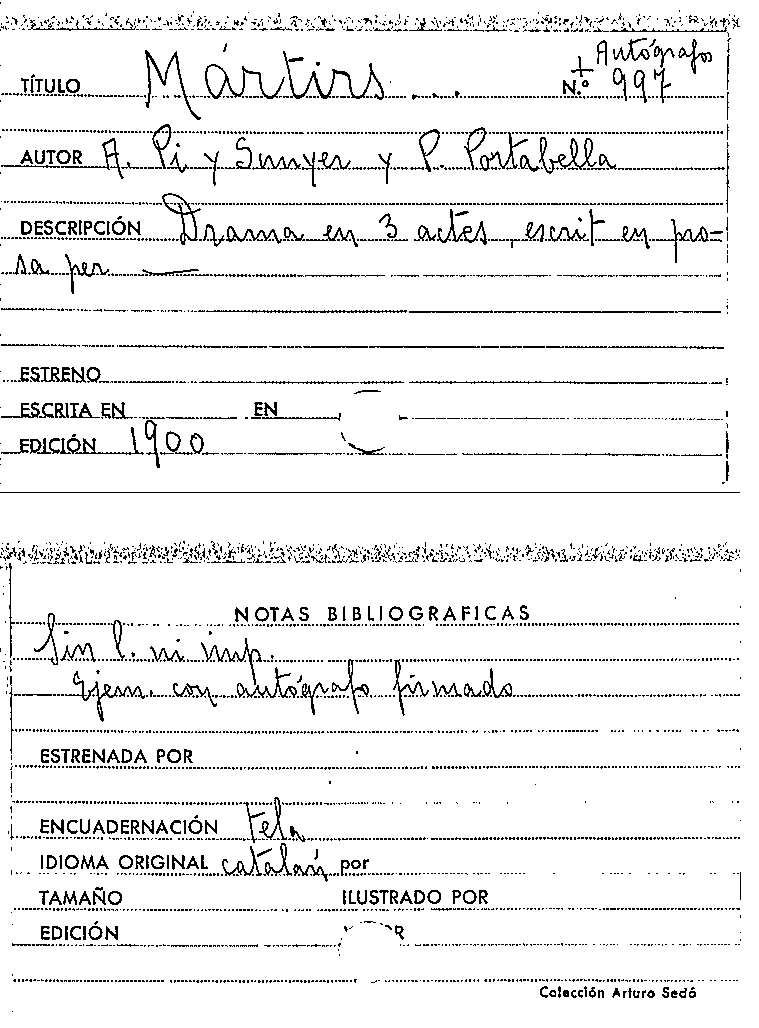 Autógrafos
TÍTULO Mártirs... N.º 997
AUTOR A. Pi y Sunyer y P. Portabella
DESCRIPCIÓN Drama en 3 actes, escrit en pro=
sa per —
ESTRENO
ESCRITA EN EN
EDICIÓN 1900
NOTAS BIBLIOGRAFICAS
Sin l. ni imp.
Ejem. con autógrafo firmado
ESTRENADA POR
ENCUADERNACIÓN tela
IDIOMA ORIGINAL catalán por
TAMAÑO ILUSTRADO POR
EDICIÓN
Colección Arturo Sedó